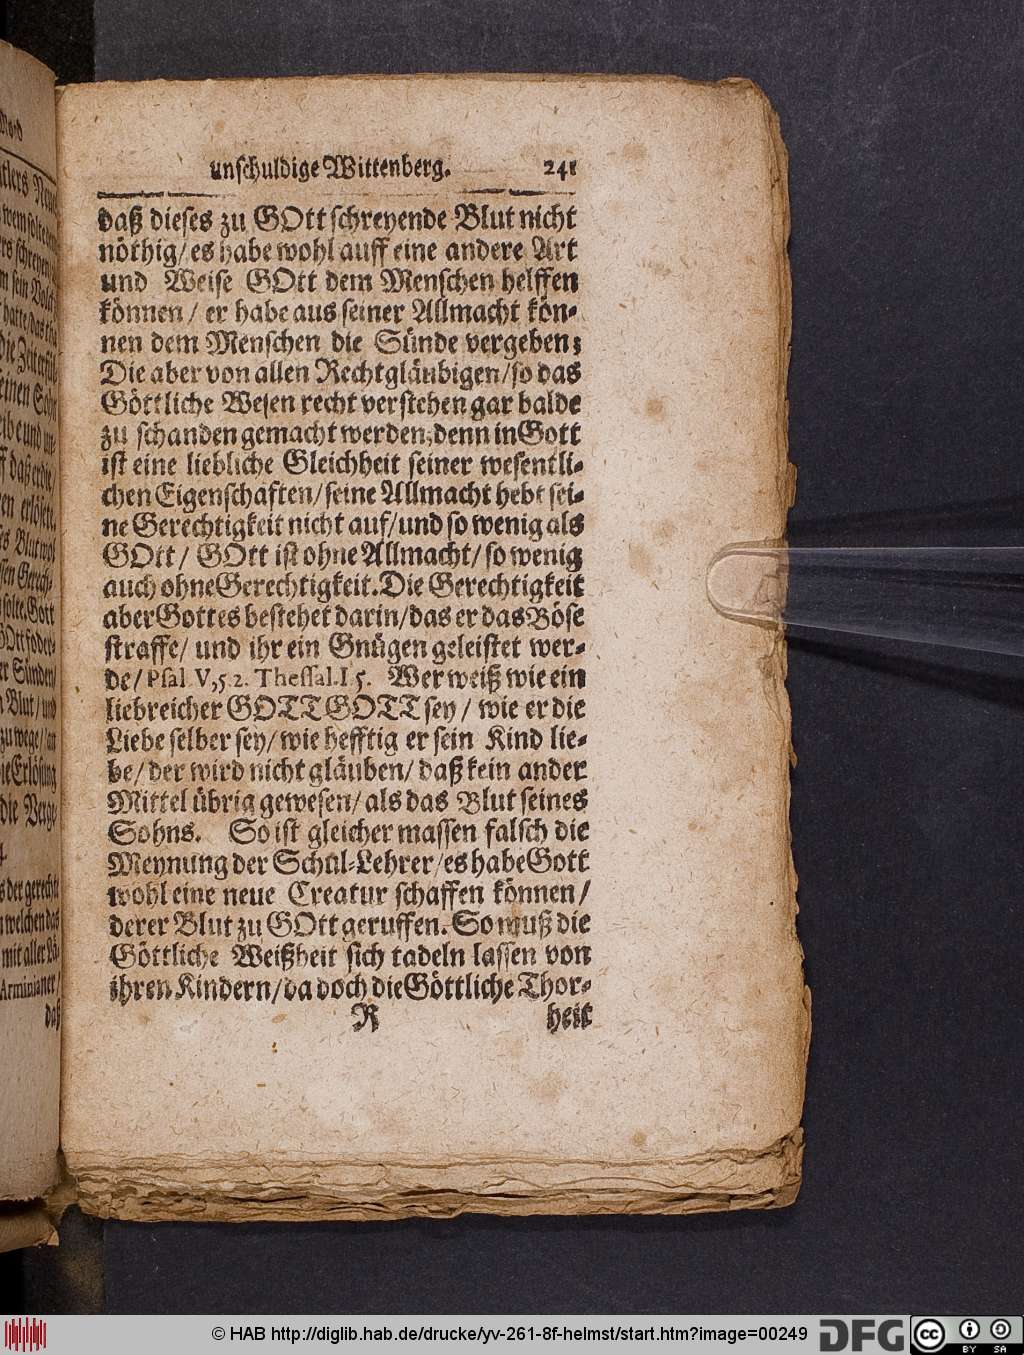 unschuldige Wittenberg. 241
daß dieses zu GOtt schreyende Blut nicht
nöthig/ es habe wohl auff eine andere Art
und Weise GOtt dem Menschen helffen
können / er habe aus seiner Allmacht kön-
nen dem Menschen die Sünde vergeben;
Die aber von allen Rechtgläubigen/ so das
Göttliche Wesen recht verstehen gar balde
zu schanden gemacht werden, denn in Gott
ist eine liebliche Gleichheit seiner wesentli-
chen Eigenschaften/ seine Allmacht hebt sei-
ne Gerechtigkeit nicht auf/ und so wenig als
GOtt/ GOtt ist ohne Allmacht/ so wenig
auch ohne Gerechtigkeit. Die Gerechtigkeit
aber Gottes bestehet darin/ das er das Böse
straffe/ und ihr ein Gnügen geleistet wer-
de/ Psal. V, 5 2. Thessal. I 5. Wer weiß wie ein
liebreicher GOTT GOTT sey / wie er die
Liebe selber sey/ wie hefftig er sein Kind lie-
be/ der wird nicht gläuben/ daß kein ander
Mittel übrig gewesen/ als das Blut seines
Sohns. So ist gleicher massen falsch die
Meynung der Schul-Lehrer/ es habe Gott
wohl eine neue Creatur schaffen können/
derer Blut zu GOtt geruffen. So muß die
Göttliche Weißheit sich tadeln lassen von
ihren Kindern/ da doch die Göttliche Thor-
R heit
© HAB http://diglib.hab.de/drucke/yv-261-8f-helmst/start.htm?image=00249 DFG cc BY SA